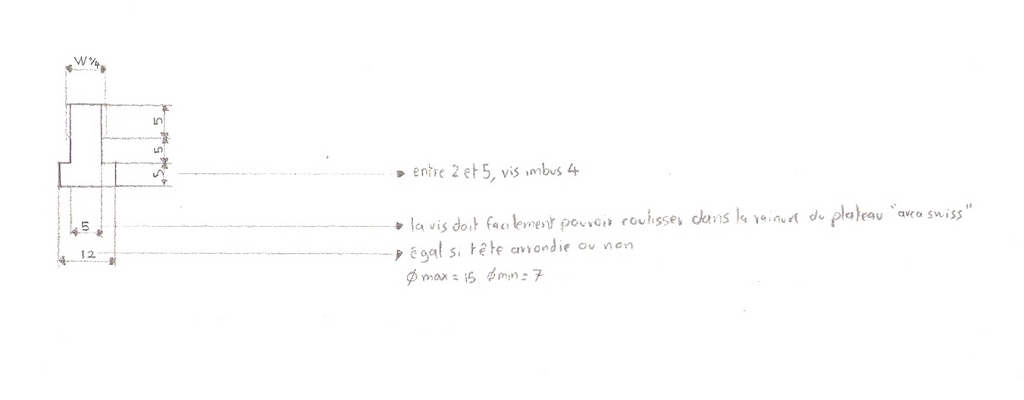 W¼
5
5
5
entre 2 et 5, vis imbus 4
5
la vis doit facilement pouvoir coulisser dans la rainure du plateau "arca swiss"
12
égal si tête arrondie ou non
Ø max = 15 Ø min = 7